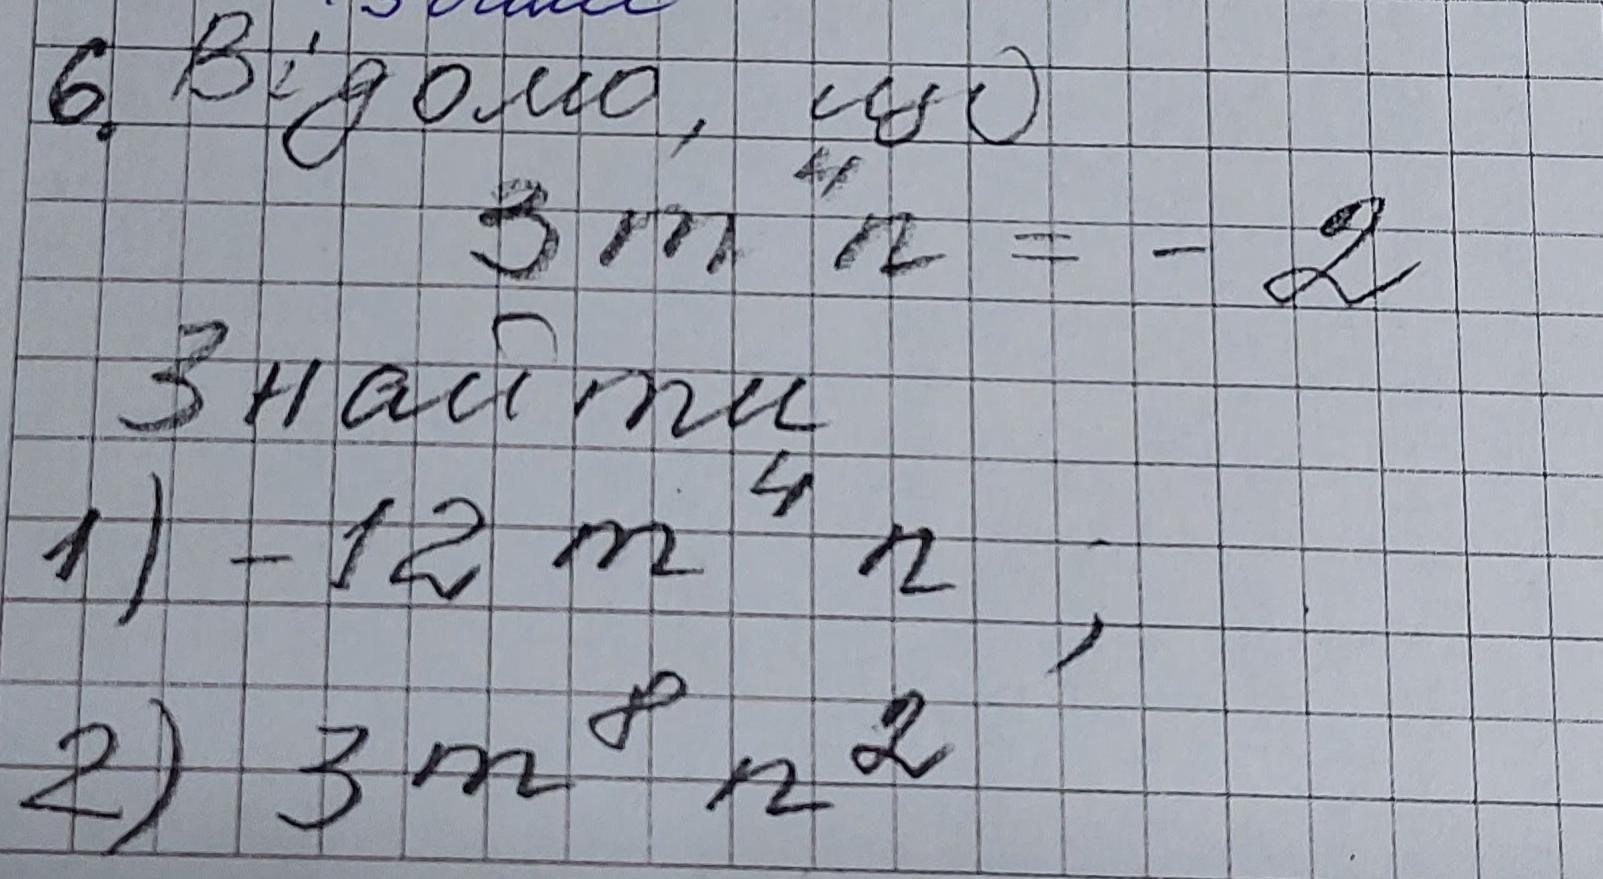 6. Відомо, що
3m⁴n = - 2
Знайти
1) - 12 m⁴ n ;
2) 3m⁸ n²